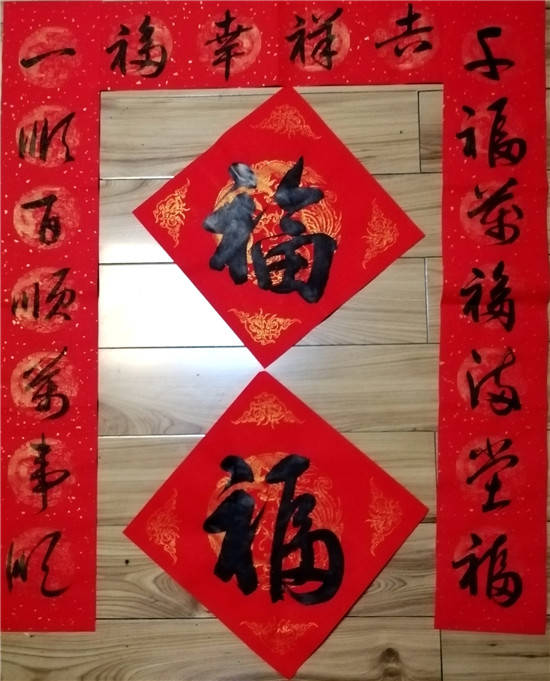 千福萬福满堂福
一顺百顺萬事顺
吉祥幸福
福
福